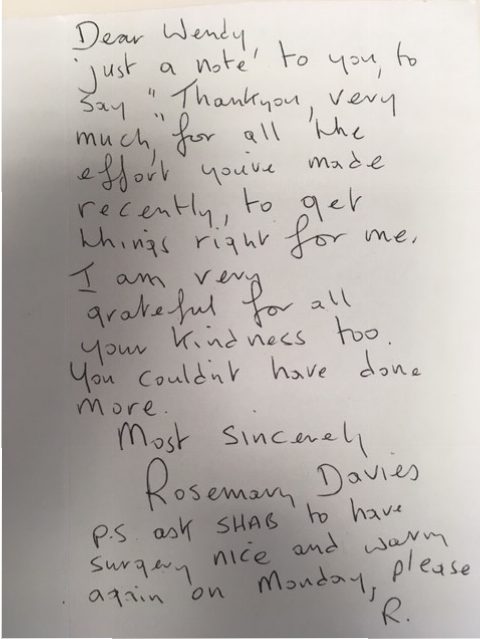 Dear Wendy
'just a note' to you, to
say "Thankyou, very
much," for all the
effort you've made
recently, to get
things right for me.
I am very
grateful for all
your kindness too.
You couldn't have done
more.
Most Sincerely
Rosemary Davies
P.S. ask SHAB to have
surgery nice and warm
again on Monday, please
R.